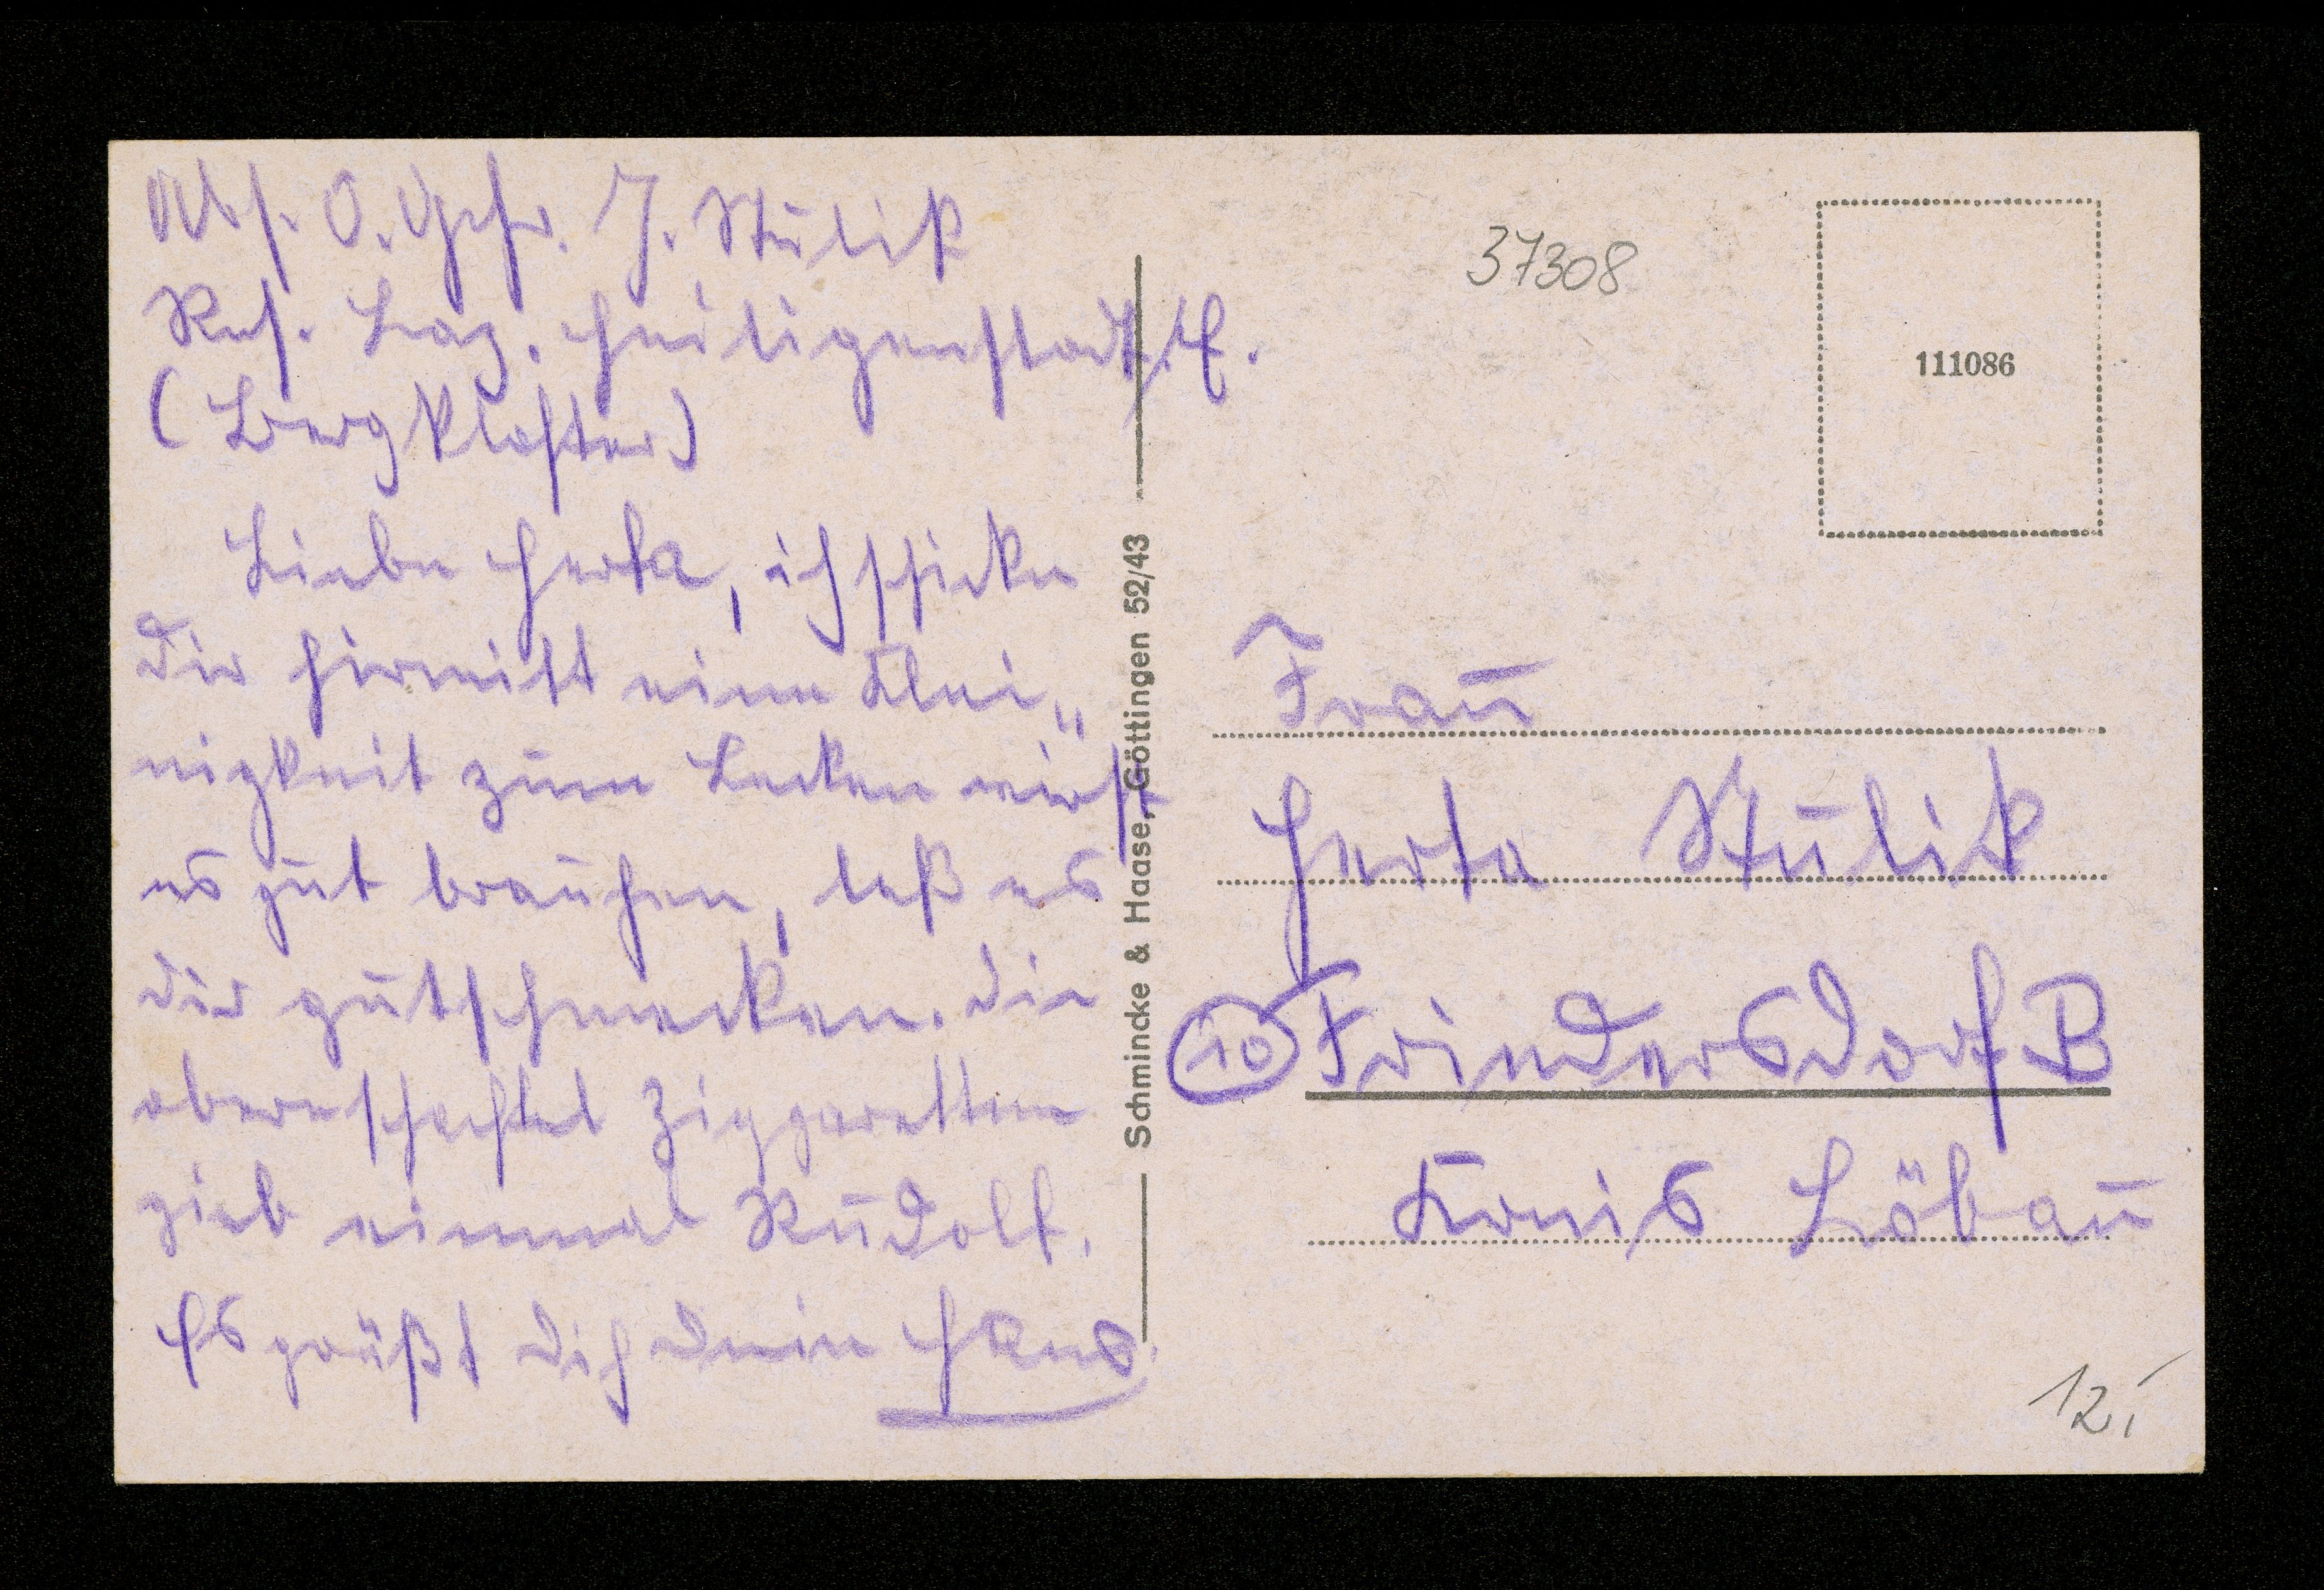 Abs. O. Gefr. J. Stulik
Res. Laz. Heiligenstadt. E.
(Bergkloster)
Liebe Herta, ich schicke
dir hirmitt eine Klei„
nigkeit zum Lecken wirst
es gut brauchen, laß es
dir gutschmecken. die
obereschachtel Ziggaretten
gieb einmal Rudolf.
Es grüßt dich dein Hans.
Schmincke & Haase, Göttingen 52/43
37308
111086
Frau
Herta Stulik
(10) Friedersdorf B
Kreis Löbau
12,-